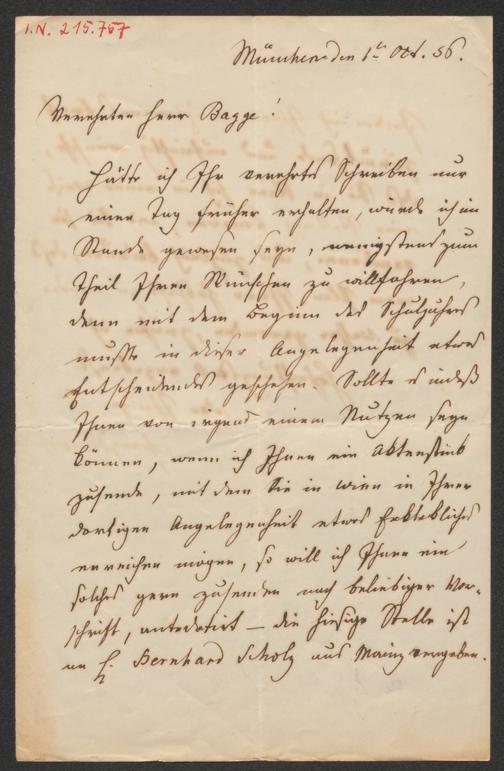 I.N. 215.757
München den 1ten Oct. 56.
Verehrter Herr Bagge!
Hätte ich Ihr verehrtes Schreiben nur
einen Tag früher erhalten, würde ich im
Stande gewesen seyn, wenigstens zum
Theil Ihren Wünschen zu willfahren,
denn mit dem Beginn des Schuljahres
mußte in dieser Angelegenheit etwas
Entscheidendes geschehen. Sollte es indeß
Ihnen von irgend einem Nutzen seyn
können, wenn ich Ihnen ein Aktenstück
zusende, mit dem Sie in Wien in Ihrer
dortigen Angelegenheit etwas Erkleckliches
erreichen mögen, so will ich Ihnen ein
solches gern zusenden nach beliebiger Vor-
schrift, antedatirt – die hiesige Stelle ist
an H. Bernhard Scholz aus Mainz vergeben.